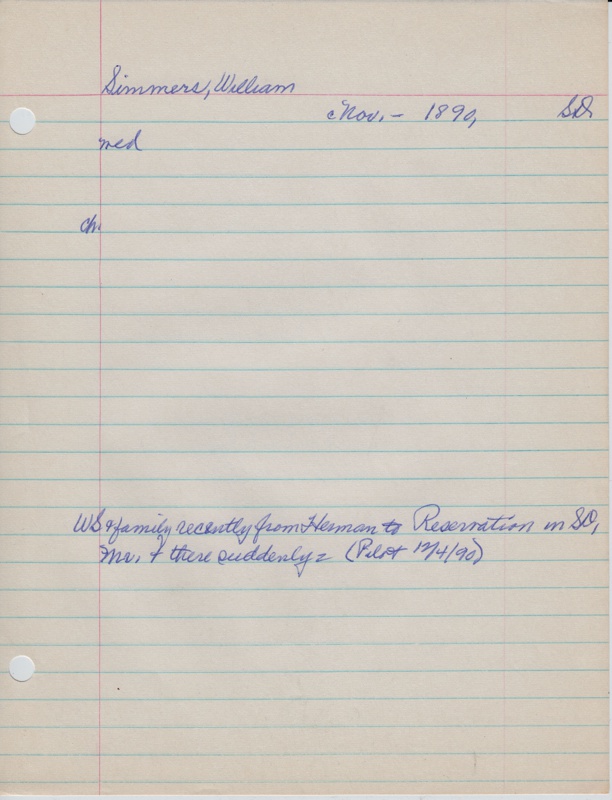 Simmers, William
Nov. - 1890, SD
med
ch.
WS & family recently from Herman to Reservation in SD,
Mr. + there suddenly = (Pilot 12/4/90)